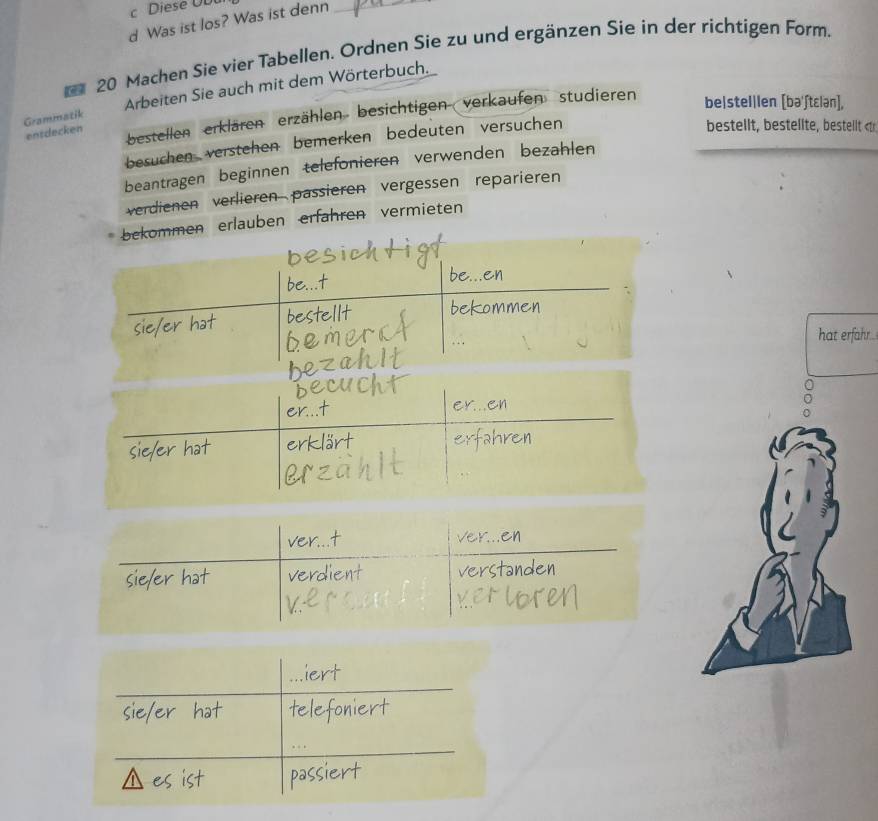 c Diese
d Was ist los? Was ist denn
C2 20 Machen Sie vier Tabellen. Ordnen Sie zu und ergänzen Sie in der richtigen Form.
Arbeiten Sie auch mit dem Wörterbuch.
Grammatik
entdecken
bestellen erklären erzählen besichtigen verkaufen studieren
besuchen verstehen bemerken bedeuten versuchen
beantragen beginnen telefonieren verwenden bezahlen
verdienen verlieren passieren vergessen reparieren
bekommen erlauben erfahren vermieten
be|stel|len [bəˈʃtɛlən],
bestellt, bestellte, bestellt
besichtigt
be...t be...en
sie/er hat bestellt bekommen
bemerct ...
bezahlt
becucht
er...t er...en
sie/er hat erklärt erfahren
erzählt ...
ver...t ver...en
sie/er hat verdient verstanden
verloren
...iert
sie/er hat telefoniert
...
⚠ es ist passiert
hat erfahr...